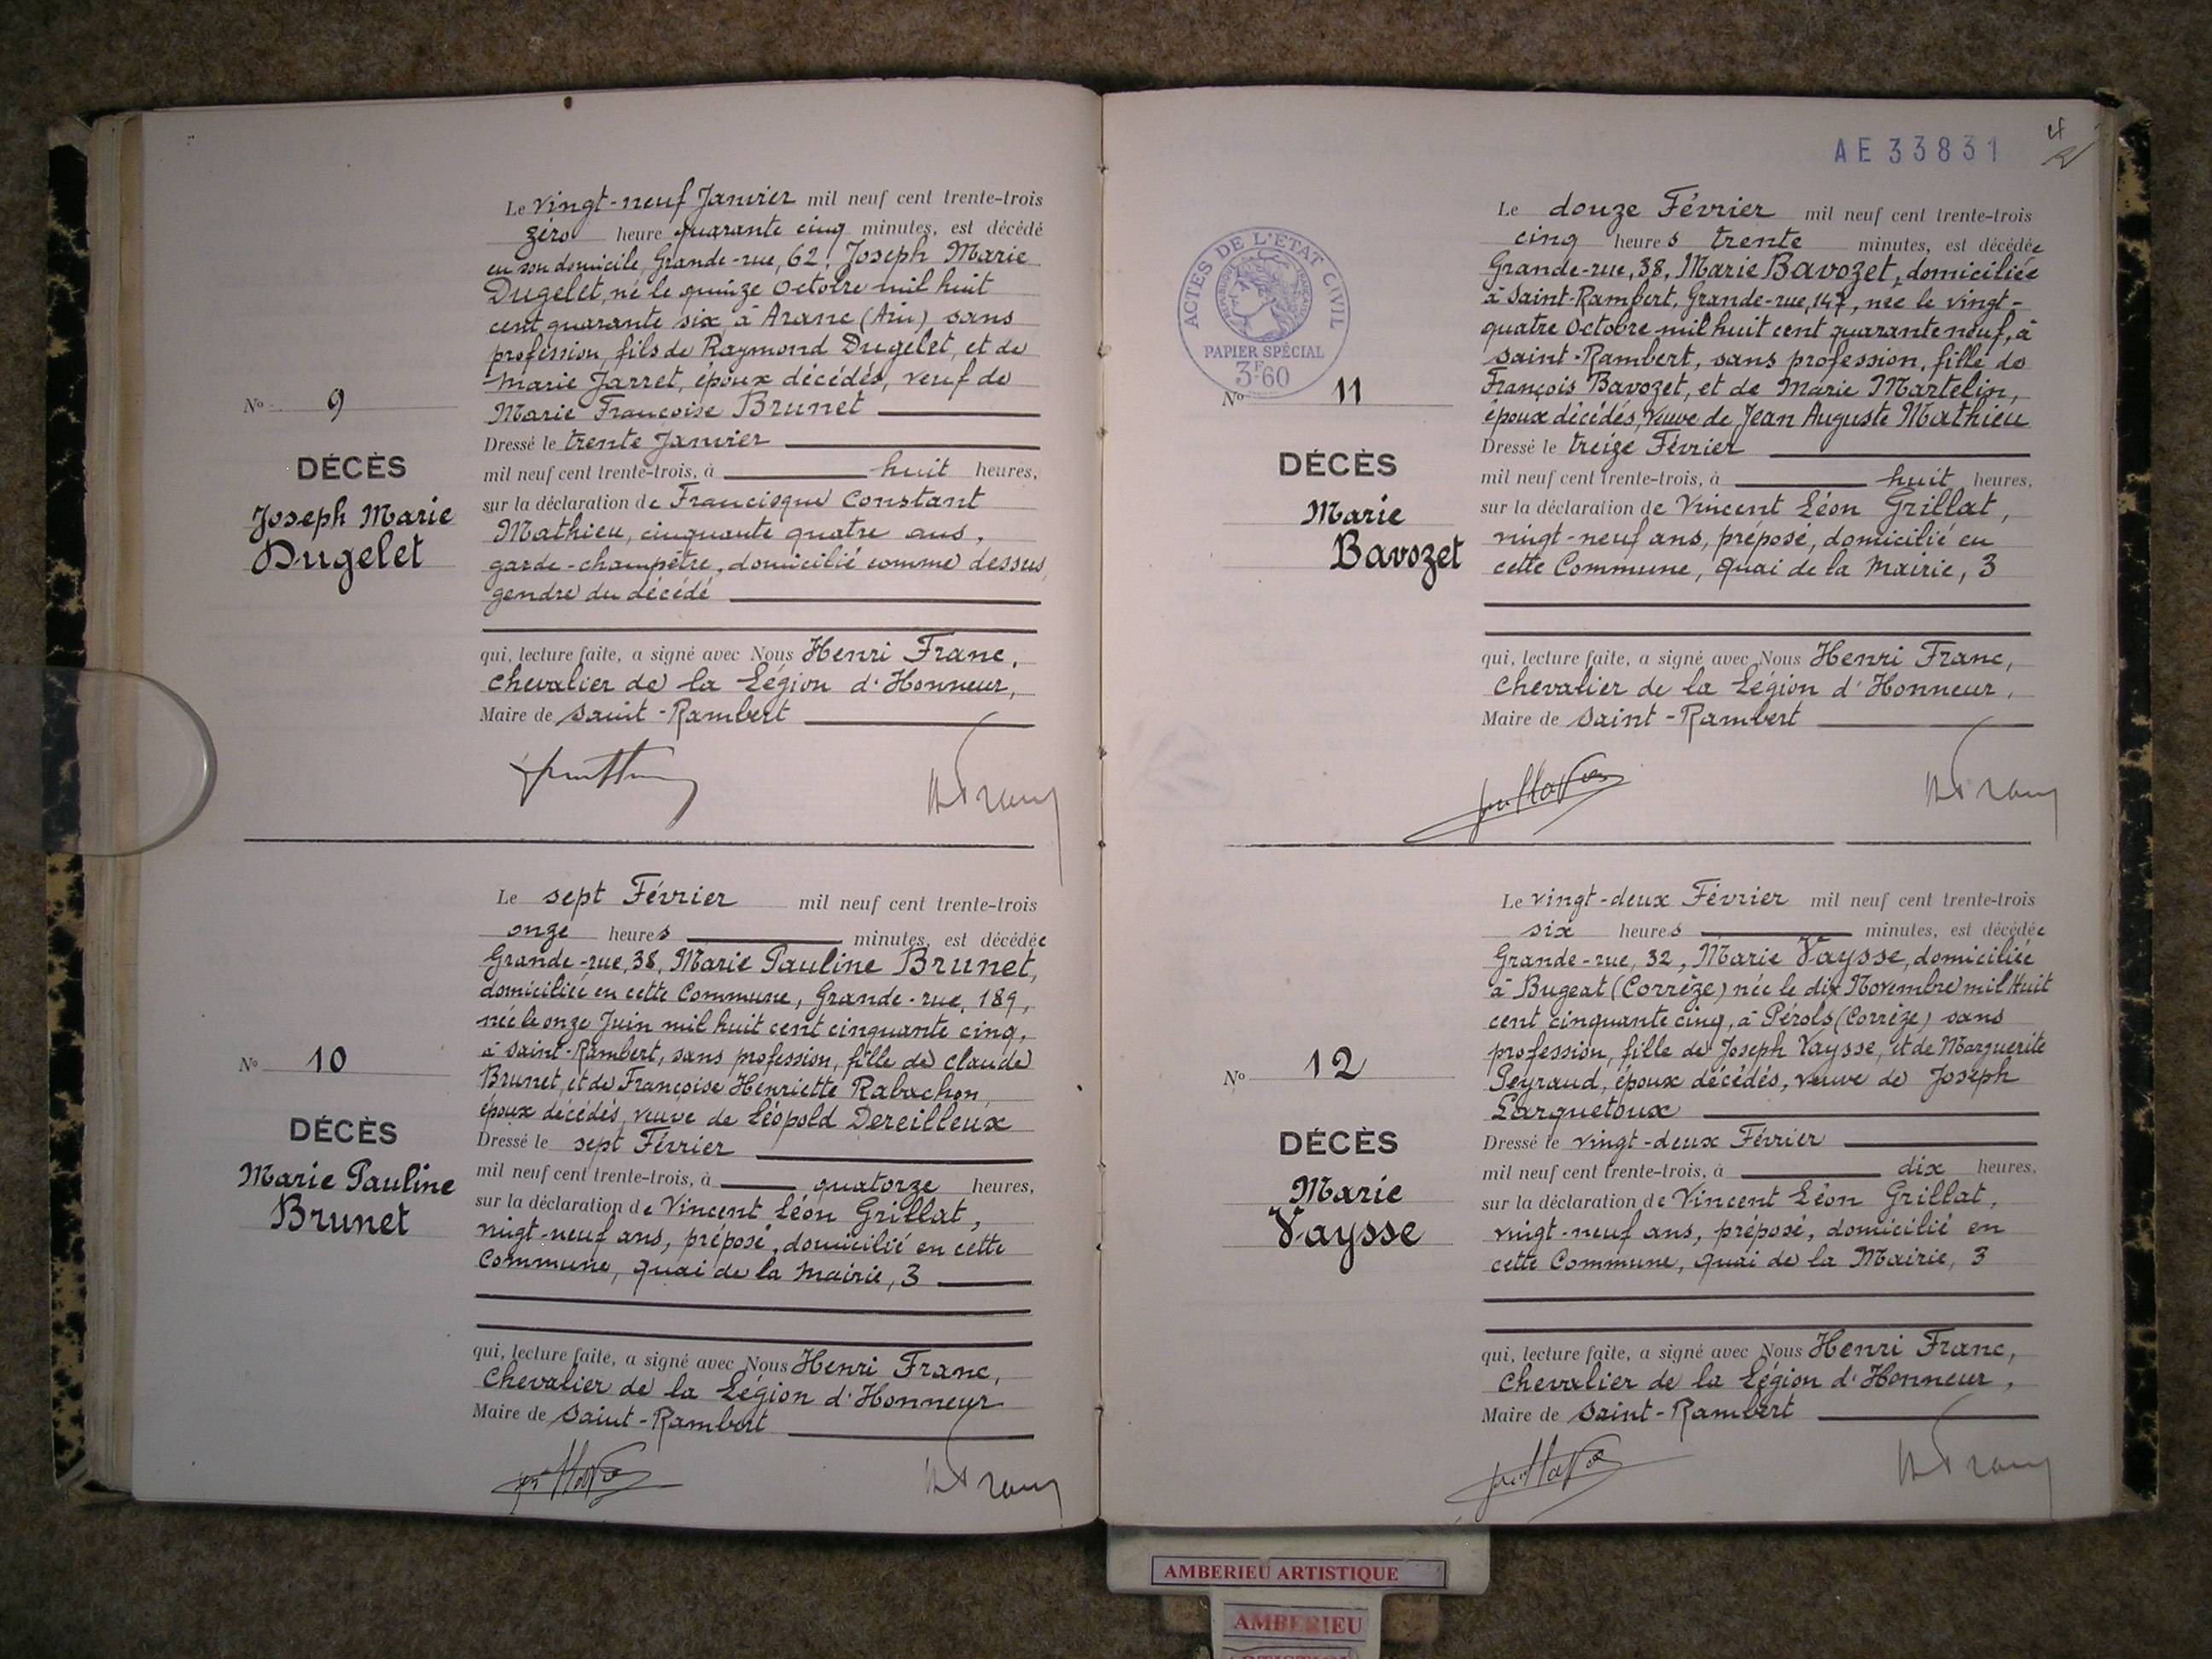 Le vingt-neuf Janvier mil neuf cent trente-trois
zéro heure quarante cinq minutes, est décédé
en son domicile, Grande-rue, 62, Joseph Marie
Dugelet, né le quinze Octobre mil huit
cent quarante six, à Aranc (Ain) sans
profession, fils de Raymond Dugelet, et de
Marie Jarret, époux décédés, veuf de
Marie Françoise Brunet
Dressé le trente Janvier
mil neuf cent trente-trois, à huit heures,
sur la déclaration de Francisque Constant
Mathieu, cinquante quatre ans,
garde-champêtre, domicilié comme dessus,
gendre du décédé
qui, lecture faite, a signé avec Nous Henri Franc,
Chevalier de la Légion d'Honneur,
Maire de Saint-Rambert
No 9
DÉCÈS
Joseph Marie
Dugelet
H Franc
Le sept Février mil neuf cent trente-trois
onze heures minutes, est décédée
Grande-rue, 38, Marie Pauline Brunet,
domiciliée en cette Commune, Grande-rue, 189,
née le onze Juin mil huit cent cinquante cinq,
à Saint-Rambert, sans profession, fille de Claude
Brunet, et de Françoise Henriette Rabachon,
époux décédés, veuve de Léopold Dereilleux
Dressé le sept Février
mil neuf cent trente-trois, à quatorze heures,
sur la déclaration de Vincent Léon Grillat,
vingt-neuf ans, préposé, domicilié en cette
Commune, quai de la Mairie, 3
qui, lecture faite, a signé avec Nous Henri Franc,
Chevalier de la Légion d'Honneur
Maire de Saint-Rambert
No 10
DÉCÈS
Marie Pauline
Brunet
H Franc
AE 33831
ACTES DE L'ÉTAT CIVIL
RÉPUBLIQUE FRANÇAISE
PAPIER SPÉCIAL
3F60
Le douze Février mil neuf cent trente-trois
cinq heures trente minutes, est décédée
Grande-rue, 38, Marie Bavozet, domiciliée
à Saint-Rambert, Grande-rue, 147, née le vingt-
quatre Octobre mil huit cent quarante neuf, à
Saint-Rambert, sans profession, fille de
François Bavozet, et de Marie Martelin,
époux décédés, veuve de Jean Auguste Mathieu
Dressé le treize Février
mil neuf cent trente-trois, à huit heures,
sur la déclaration de Vincent Léon Grillat,
vingt-neuf ans, préposé, domicilié en
cette Commune, quai de la Mairie, 3
qui, lecture faite, a signé avec Nous Henri Franc,
Chevalier de la Légion d'Honneur,
Maire de Saint-Rambert
No 11
DÉCÈS
Marie
Bavozet
H Franc
Le vingt-deux Février mil neuf cent trente-trois
six heures minutes, est décédée
Grande-rue, 32, Marie Vaysse, domiciliée
à Bugeat (Corrèze) née le dix Novembre mil Huit
cent cinquante cinq, à Pérols (Corrèze) sans
profession, fille de Joseph Vaysse, et de Marguerite
Peyraud, époux décédés, veuve de Joseph
Larquetoux
Dressé le vingt-deux Février
mil neuf cent trente-trois, à dix heures,
sur la déclaration de Vincent Léon Grillat,
vingt-neuf ans, préposé, domicilié en
cette Commune, quai de la Mairie, 3
qui, lecture faite, a signé avec Nous Henri Franc,
Chevalier de la Légion d'Honneur,
Maire de Saint-Rambert
No 12
DÉCÈS
Marie
Vaysse
H Franc
AMBERIEU ARTISTIQUE
AMBERIEU
ARTISTIQUE